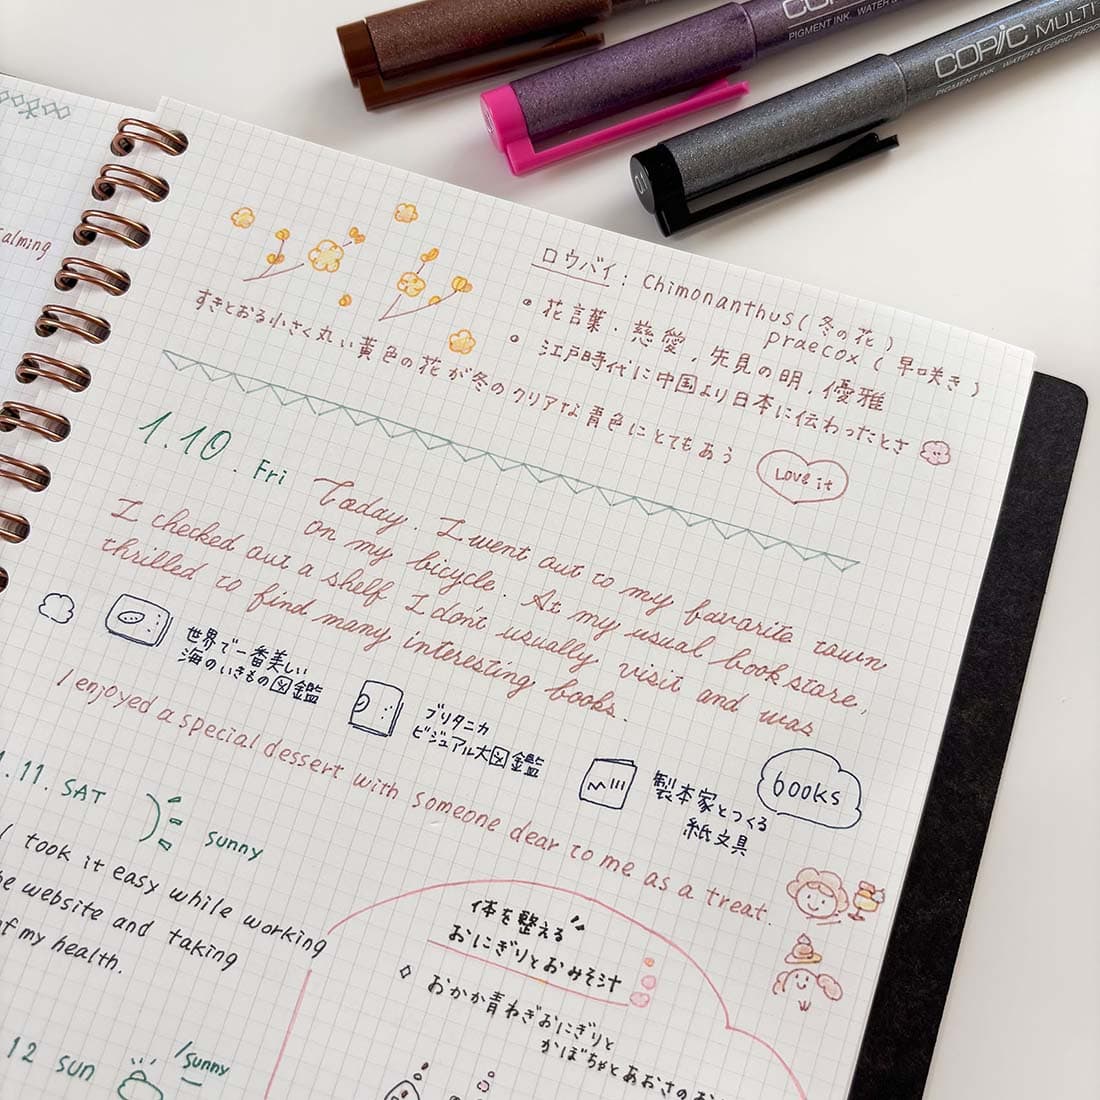 COPIC MULTI
PIGMENT INK. WATER & COPIC PROO
PIGMENT INK. WATER &
COP
01
alming
ロウバイ : Chimonanthus (冬の花)
praecox (早咲き)
• 花言葉、慈愛、先見の明、優雅
• 江戸時代に中国より日本に伝わったとさ
すきとおる小さく丸い黄色の花が冬のクリアな青色にとてもあう
Love it
1.10. Fri
Today. I went out to my favorite town
on my bicycle. At my usual bookstore,
I checked out a shelf I don't usually visit and was
thrilled to find many interesting books.
世界で一番美しい
海のいきもの図鑑
ブリタニカ
ビジュアル大図鑑
製本家とつくる
紙文具
books
I enjoyed a special dessert with someone dear to me as a treat.
1.11. SAT
sunny
I took it easy while working
he website and taking
of my health.
体を整える
おにぎりとおみそ汁
◇ おかか青ねぎおにぎりと
かぼちゃとあおさのお
12 sun
sunny